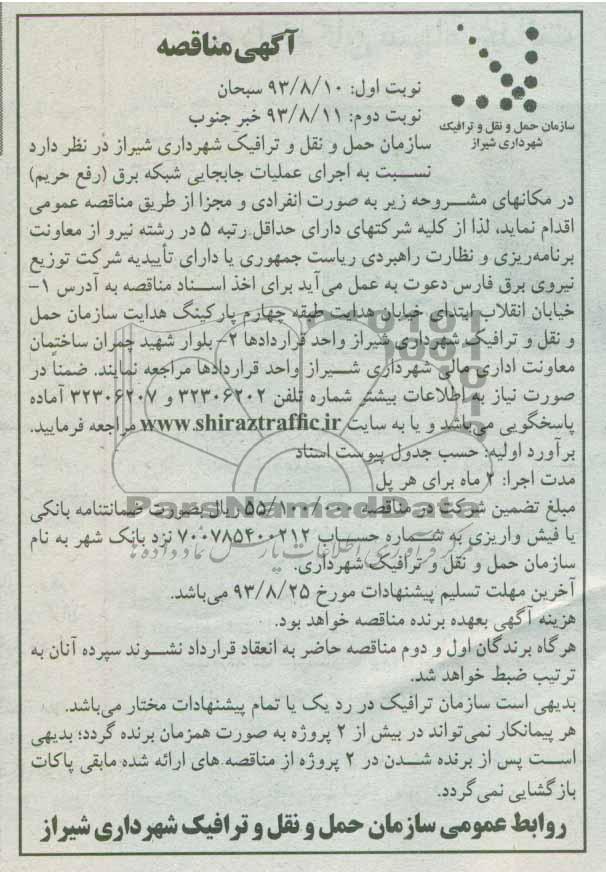 آگهی مناقصه
نوبت اول: ۹۳/۸/۱۰ سبحان
نوبت دوم: ۹۳/۸/۱۱ خبر جنوب
سازمان حمل و نقل و ترافیک
شهرداری شیراز
سازمان حمل و نقل و ترافیک شهرداری شیراز در نظر دارد
نسبت به اجرای عملیات جابجایی شبکه برق (رفع حریم)
در مکانهای مشروحه زیر به صورت انفرادی و مجزا از طریق مناقصه عمومی
اقدام نماید، لذا از کلیه شرکتهای دارای حداقل رتبه ۵ در رشته نیرو از معاونت
برنامه‌ریزی و نظارت راهبردی ریاست جمهوری یا دارای تأییدیه شرکت توزیع
نیروی برق فارس دعوت به عمل می‌آید برای اخذ اسناد مناقصه به آدرس ۱-
خیابان انقلاب ابتدای خیابان هدایت طبقه چهارم پارکینگ هدایت سازمان حمل
و نقل و ترافیک شهرداری شیراز واحد قراردادها ۲- بلوار شهید چمران ساختمان
معاونت اداری مالی شهرداری شیراز واحد قراردادها مراجعه نمایند. ضمناً در
صورت نیاز به اطلاعات بیشتر شماره تلفن ۳۲۳۰۶۲۰۲ و ۳۲۳۰۶۲۰۷ آماده
پاسخگویی می‌باشد و یا به سایت www.shiraztraffic.ir مراجعه فرمایید.
برآورد اولیه: حسب جدول پیوست اسناد
مدت اجرا: ۲ ماه برای هر پل
مبلغ تضمین شرکت در مناقصه ۵۵/۱۰۰/۰۰۰ ریال بصورت ضمانتنامه بانکی
یا فیش واریزی به شماره حساب ۷۰۰۷۸۵۴۰۰۲۱۲ نزد بانک شهر به نام
سازمان حمل و نقل و ترافیک شهرداری.
آخرین مهلت تسلیم پیشنهادات مورخ ۹۳/۸/۲۵ می‌باشد.
هزینه آگهی بعهده برنده مناقصه خواهد بود.
هرگاه برندگان اول و دوم مناقصه حاضر به انعقاد قرارداد نشوند سپرده آنان به
ترتیب ضبط خواهد شد.
بدیهی است سازمان ترافیک در رد یک یا تمام پیشنهادات مختار می‌باشد.
هر پیمانکار نمی‌تواند در بیش از ۲ پروژه به صورت همزمان برنده گردد؛ بدیهی
است پس از برنده شدن در ۲ پروژه از مناقصه های ارائه شده مابقی پاکات
بازگشایی نمی‌گردد.
روابط عمومی سازمان حمل و نقل و ترافیک شهرداری شیراز
ParsNamadData
مرکز فرآوری اطلاعات پارس نماد داده ها